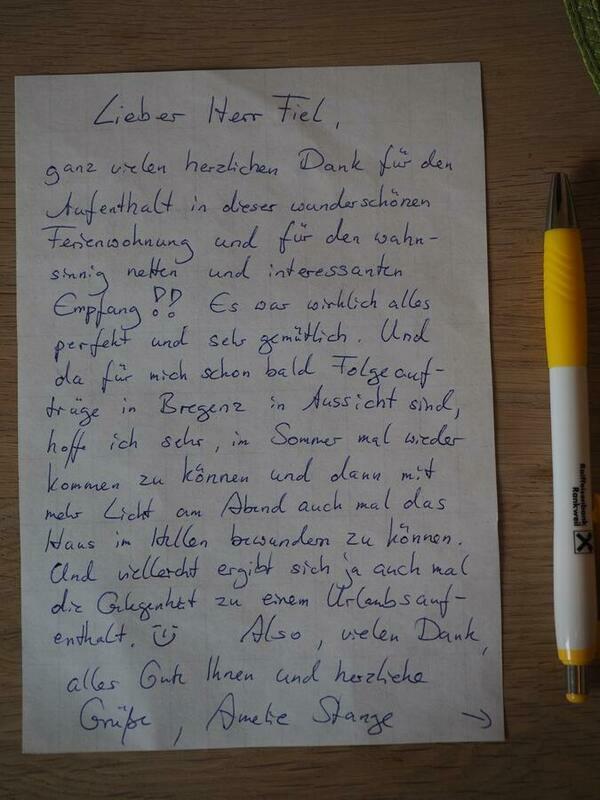 Lieber Herr Fiel,
ganz vielen herzlichen Dank für den
Aufenthalt in dieser wunderschönen
Ferienwohnung und für den wahn-
sinnig netten und interessanten
Empfang!! Es war wirklich alles
perfekt und sehr gemütlich. Und
da für mich schon bald Folgeauf-
träge in Bregenz in Aussicht sind,
hoffe ich sehr, im Sommer mal wieder
kommen zu können und dann mit
mehr Licht am Abend auch mal das
Haus im Hellen bewundern zu können.
Und vielleicht ergibt sich ja auch mal
die Gelegenheit zu einem Urlaubsauf-
enthalt. ☺ Also, vielen Dank,
alles Gute Ihnen und herzliche
Grüße, Amelie Stange →
Raiffeisenbank
Rankweil